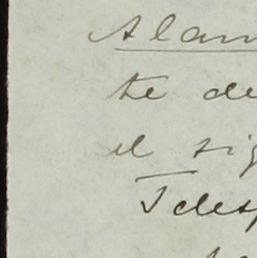 Alam
te de
el sig
Telesp